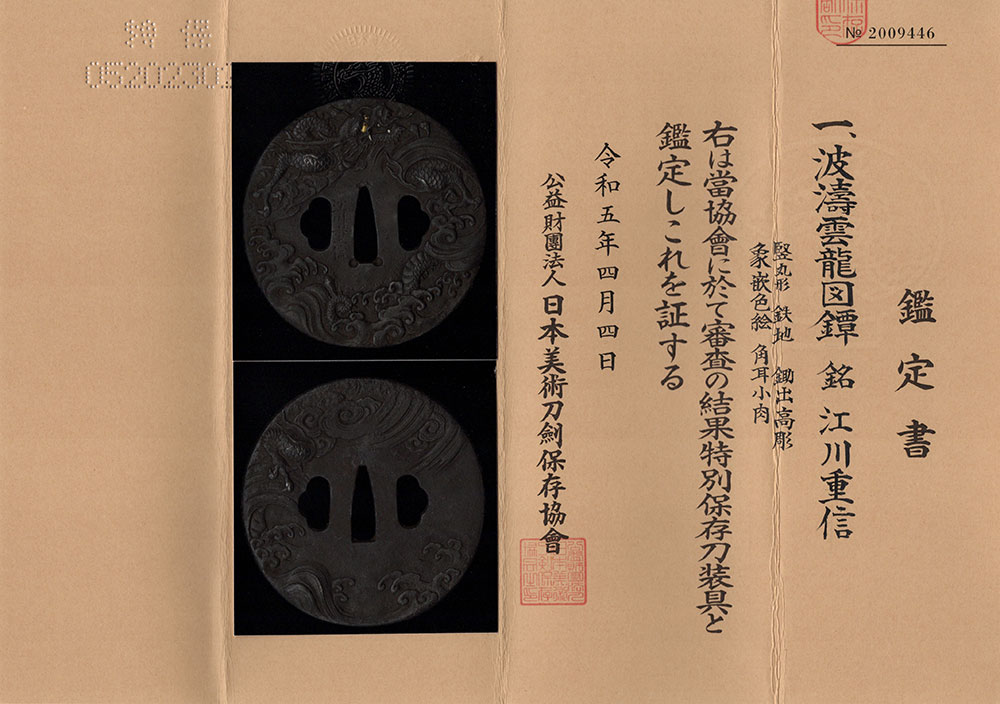 № 2009446
鑑定書
一、波濤雲龍図鐔 銘 江川重信
竪丸形 鉄地 鋤出高彫
象嵌色絵 角耳小肉
右は當協會に於て審査の結果特別保存刀装具と
鑑定しこれを証する
令和五年四月四日
公益財團法人 日本美術刀劍保存協會
特 保